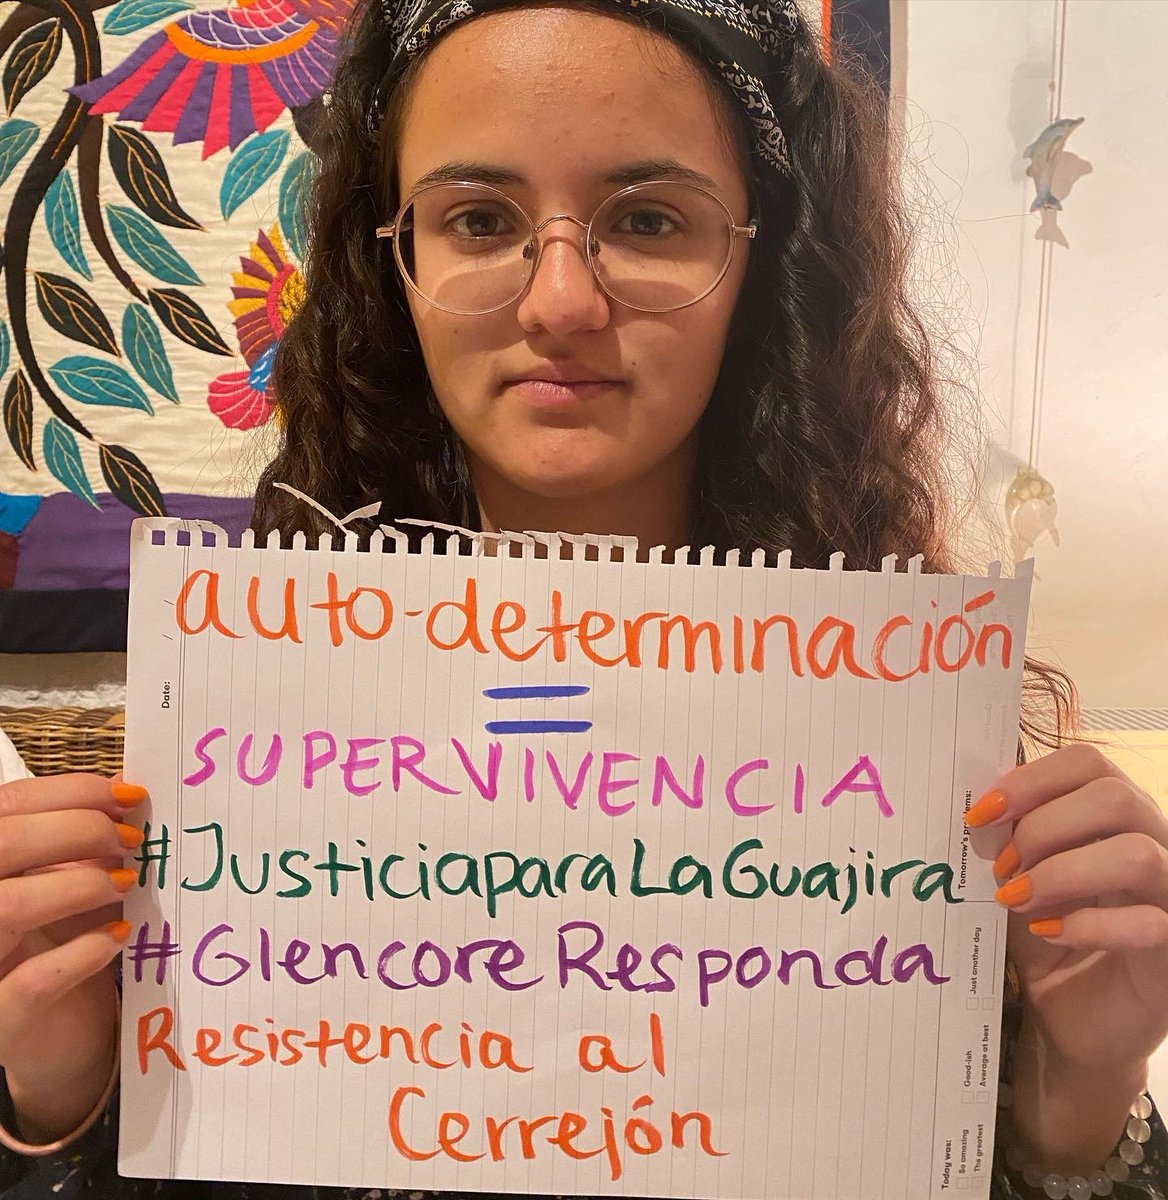 auto-determinación
=
SUPERVIVENCIA
#JusticiaparaLaGuajira
#GlencoreResponda
Resistencia al
Cerrejón
Date:
Tomorrow's problems:
Just another day
Good-ish
Average at best
Today was:
So amazing
The greatest